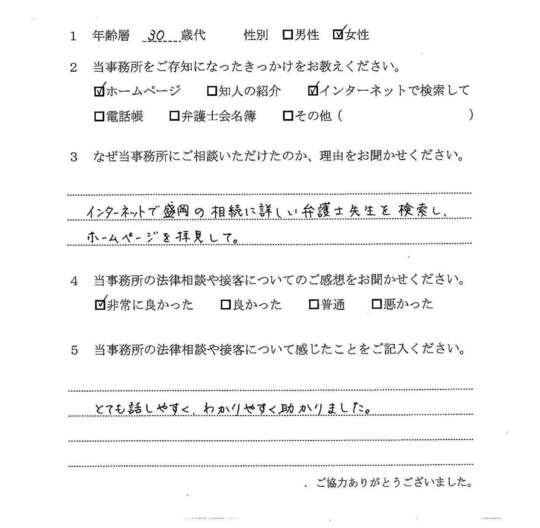 1 年齢層 30 歳代 性別 □男性 ☑女性
2 当事務所をご存知になったきっかけをお教えください。
☑ホームページ □知人の紹介 ☑インターネットで検索して
□電話帳 □弁護士会名簿 □その他( )
3 なぜ当事務所にご相談いただけたのか、理由をお聞かせください。
インターネットで盛岡の相続に詳しい弁護士先生を検索し、
ホームページを拝見して。
4 当事務所の法律相談や接客についてのご感想をお聞かせください。
☑非常に良かった □良かった □普通 □悪かった
5 当事務所の法律相談や接客について感じたことをご記入ください。
とても話しやすく、わかりやすく助かりました。
ご協力ありがとうございました。